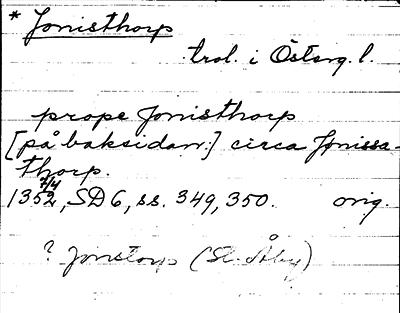 * Jonisthorp
trol. i Österg. l.
prope Jonisthorp
[på baksidan:] circa Jonissa-
thorp.
1352 7/4, SD 6, ss. 349, 350. orig.
? Jonstorp (St. Åby)